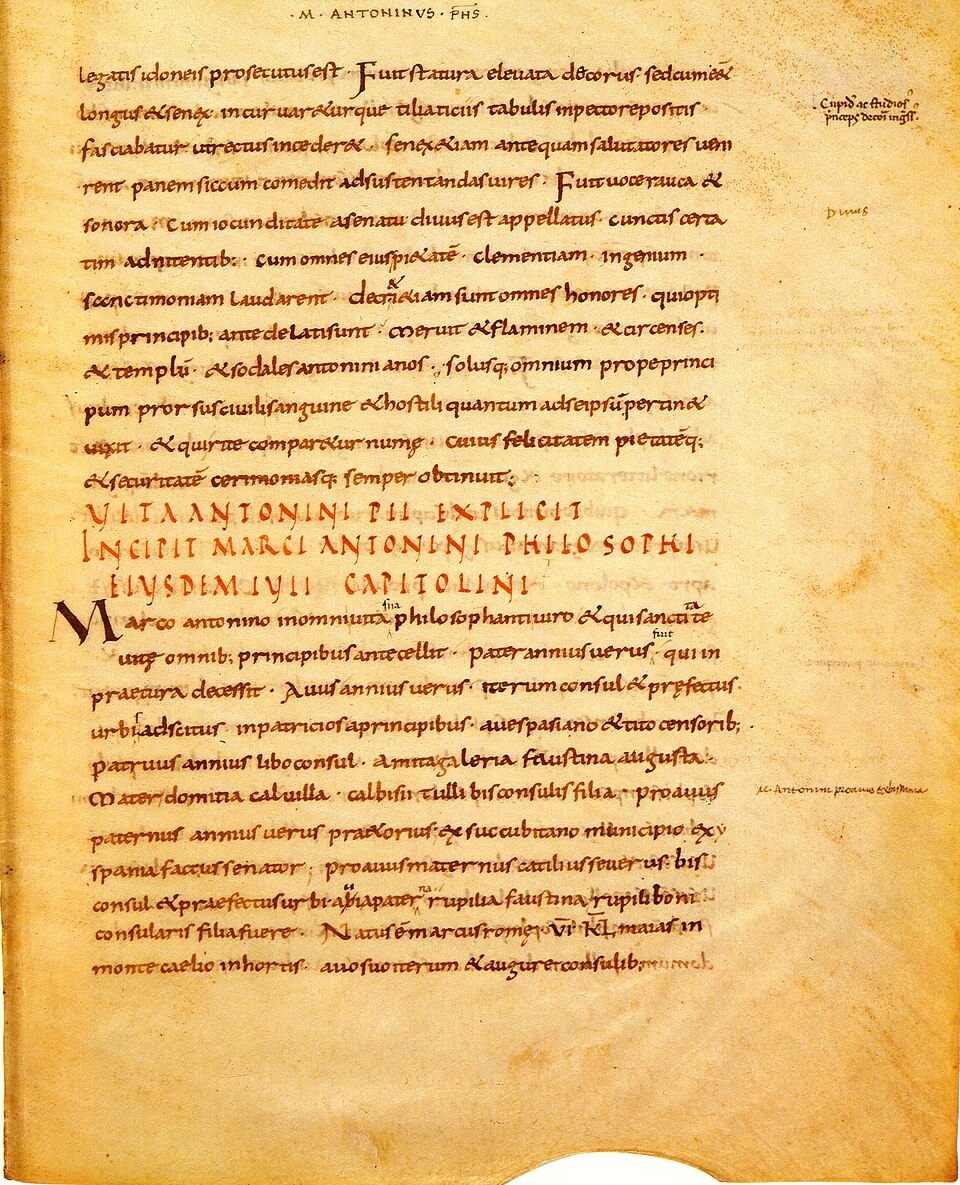 · M · ANTONINVS · PHS ·
legatis idoneis prosecutus est · Fuit statura elevata decorus · sed cum e&
longus & senex incurvar&ur que tiliaticiis tabulis inpectore positis
fasciabatur ut rectus inceder& · senex &iam antequam salutatores veni
rent panem siccum comedit ad sustentandas vires · Fuit voce rauca &
sonora · Cum iocunditate a senatu divus est appellatus · cunctis certa
tim adnitentib: · cum omnes eius pi&atē · clementiam · ingenium ·
sanctimoniam laudarent · decr&a &iam sunt omnes honores · qui opti
mis principib; ante delati sunt · Meruit & flaminem · & circenses ·
& templū · & sodales antoninianos · solusq; omnium prope princi
pum prorsus civili sanguine & hostili quantum ad se ipsū pertin&
vixit · & qui rite compar&ur numę · Cuius felicitatem pietatēq;
& securitatē cerimoniasq; semper obtinuit;
VITA ANTONINI PII EXPLICIT
INCIPIT MARCI ANTONINI PHILOSOPHI
EIUSDEM IULII CAPITOLINI
Marco antonino in omni vita philosophanti viro & qui sanctitate
vitę omnib; principibus antecellit · pater annius verus fuit qui in
praetura decessit · Avus annius verus · iterum consul & pręfectus
urbi adscitus in patricios a principibus · a vespasiano & tito censorib;
patruus annius libo consul · Amita galeria faustina augusta ·
Mater domitia calvilla · calbisii tulli bis consulis filia · proavus
paternus annius verus pra&orius ex succubitano municipio ex y
spania factus senator · proavus maternus catilius severus · bis
consul & praefectus urbi · avia paterna rupilia faustina rupili boni
consularis filia fuere · Natus ē marcus romę · VI KL maias in
monte caelio in hortis · avo suo iterum & augure consulib;
Divus
M. Antonini proavus ex hispania